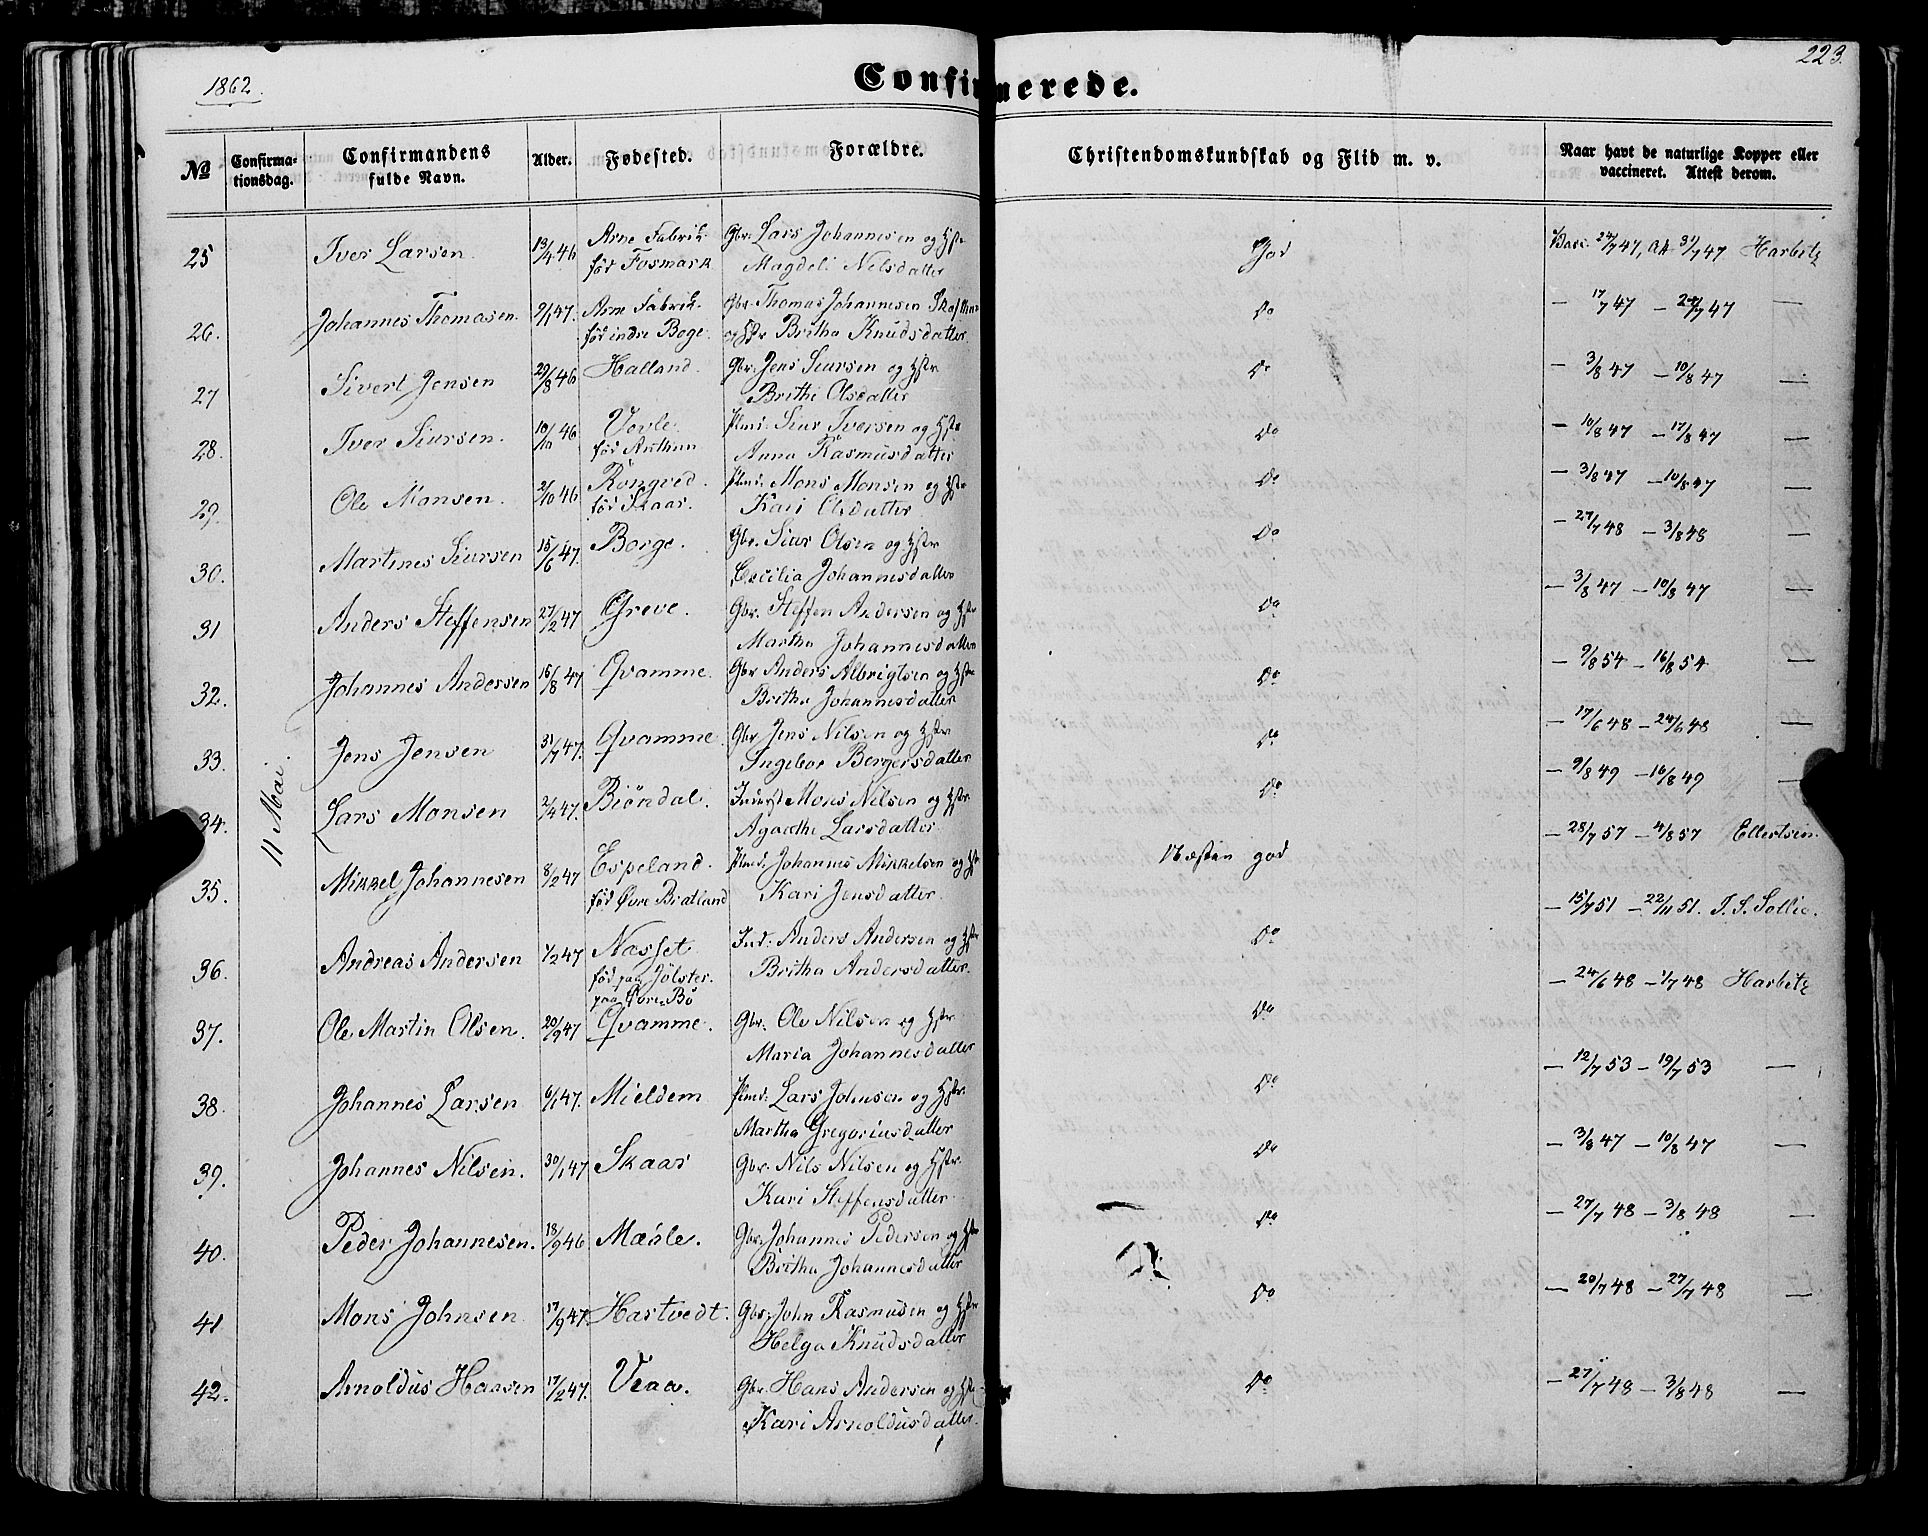 1862.
Confirmerede.
223.
No
Confirmationsdag.
Confirmandens fulde Navn.
Alder.
Fødested.
Forældre.
Christendomskundskab og Flid m. v.
Naar havt de naturlige Kopper eller vaccineret. Attest derom.
11 Mai.
25 Iver Larsen 13/4 46 Arne Fabrik Gbr. Lars Johannesen og Hstr God Vacc. 24/7 47, Att 31/7 47 Harbitz
fød Fosmark Magdeli Nilsdatter
26. Johannes Thomasen 9/1 47. Arne Fabrik Gbr. Thomas Johannesen Do — 17/7 47 — 24/7 47 —
fød indre Boge og Hstr Britha Knudsdatter
27 Sivert Jensen 29/8 46 Halland. Gbr. Jens Siursen og Hstr Do — 3/8 47 — 10/8 47 —
Brithe Olsdatter
28. Iver Siursen. 10/10 46 Vevle Plmd. Siur Iversen og Hstr Do — 10/8 47 — 17/8 47 —
fød Anna Rasmusdatter
29. Ole Monsen. 2/10 46 Rongved. Plmd. Mons Monsen og Hstr Do — 3/8 47 — 10/8 47 —
fød Skaar. Kari Olsdatter
30. Martines Siursen 15/6 47. Borge. Gbr. Siur Olsen og Hstr Do — 27/7 48 — 3/8 48 —
Cecilia Johannesdatter
31 Anders Steffensen 27/2 47 Greve. Gbr. Steffen Andersen og Hstr Do — 3/8 47 — 10/8 47 —
Martha Johannesdatter
32. Johannes Andersen 15/8 47 Qvamme. Gbr Anders Albrigtsen og Hstr Do — 9/8 54 — 16/8 54 —
Britha Johannesdatter
33. Jens Jensen 31/7 47. Qvamme. Gbr Jens Nilsen og Hstr Do — 17/6 48 — 24/6 48
Ingebor Bergersdatter
34. Lars Monsen 2/4 47. Biørndal. Mons Nilsen og Hstr Do — 9/8 49 — 16/8 49 —
Agaethe Larsdatter
35. Mikkel Johannesen 8/2 47 Espeland. Plmd. Johannes Mikkelsen og Hstr Næsten god — 28/7 57 — 4/8 57 Ellertsen
fød Øvre Bratland Kari Jensdatter.
36. Andreas Andersen 1/2 47 Næsset Ind: Anders Andersen og Hstr Do — 15/7 51 — 22/11 51. T. S. Sollie.
fød paa Jølster. Britha Andersdatter.
paa Øvre Bø
37. Ole Martin Olsen. 20/9 47 Qvamme. Gbr. Ole Nilsen og Hstr Do — 24/6 48 — 1/7 48 Harbitz
Maria Johannesdatter
38. Johannes Larsen 6/1 47. Mieldem Plmd. Lars Johnsen og Hstr. Do — 12/7 53 — 19/7 53 —
Martha Gregoriusdatter
39. Johannes Nilsen. 30/1 47 Skaar Gbr. Nils Nilsen og Hstr. Do — 3/8 47 — 10/8 47 —
Kari Steffensdatter
40. Peder Johannesen. 18/9 46 Mæhle. Gbr. Johannes Pedersen og Hstr Do — 27/7 48 — 3/8 48 —
Britha Johannesdatter
41 Mons Johnsen 17/9 47. Hartvedt. Gbr. John Rasmusen og Hstr Do — 20/7 48 — 27/7 48 —
Helga Knudsdatter
42. Arnoldus Hansen 17/2 47. Veaa. Gbr. Hans Andersen og Hstr Do — 27/7 48 — 3/8 48 —
Kari Arnoldusdatter.